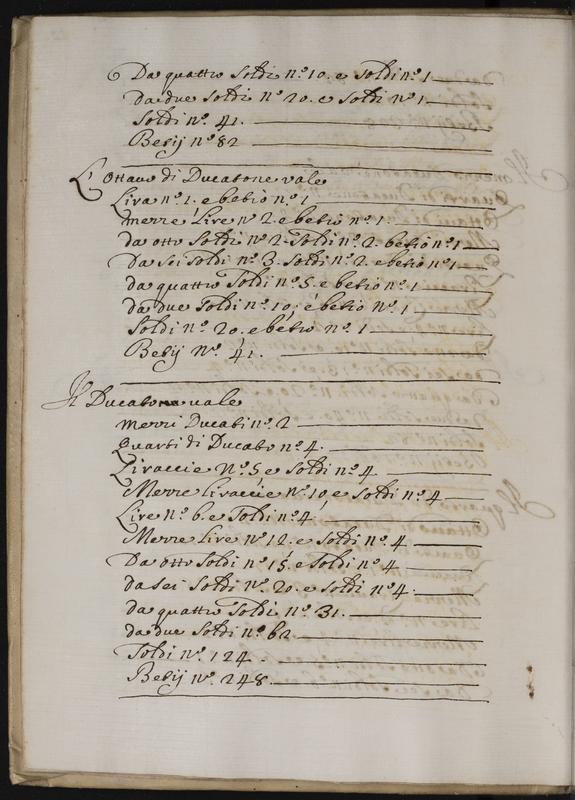 Da quattro Soldi nº. 10. e Soldi nº. 1
da due Soldi nº 20. e Soldi nº. 1
Soldi nº. 41.
Betij nº. 82
L'Ottavo di Ducatone vale
Lira nº. 1. e betio nº. 1
merre Lire nº 2. e betio nº. 1.
da otto Soldi nº 2. Soldi nº. 2. betio nº. 1
Da sei Soldi nº. 3. Soldi nº. 2. e betio nº. 1
da quattro Soldi nº. 5. e betio nº. 1
da due Soldi nº. 10. e betio nº. 1
Soldi nº. 20. e betio nº. 1
Betij Nº. 41.
Il Ducato vale
merri Ducati nº. 2
Quarti di Ducato nº. 4.
Liraccie Nº. 5 e Soldi nº. 4
Merre Liraccie nº. 10 e Soldi nº. 4
Lire nº. 6. e Soldi nº. 4
Merre Lire nº. 12. e Soldi nº. 4.
Da otto Soldi nº. 15. e Soldi nº. 4
da sei Soldi nº. 20. e Soldi nº. 4.
da quattro Soldi nº. 31.
da due Soldi nº. 62
Soldi nº. 124.
Betij nº. 248.